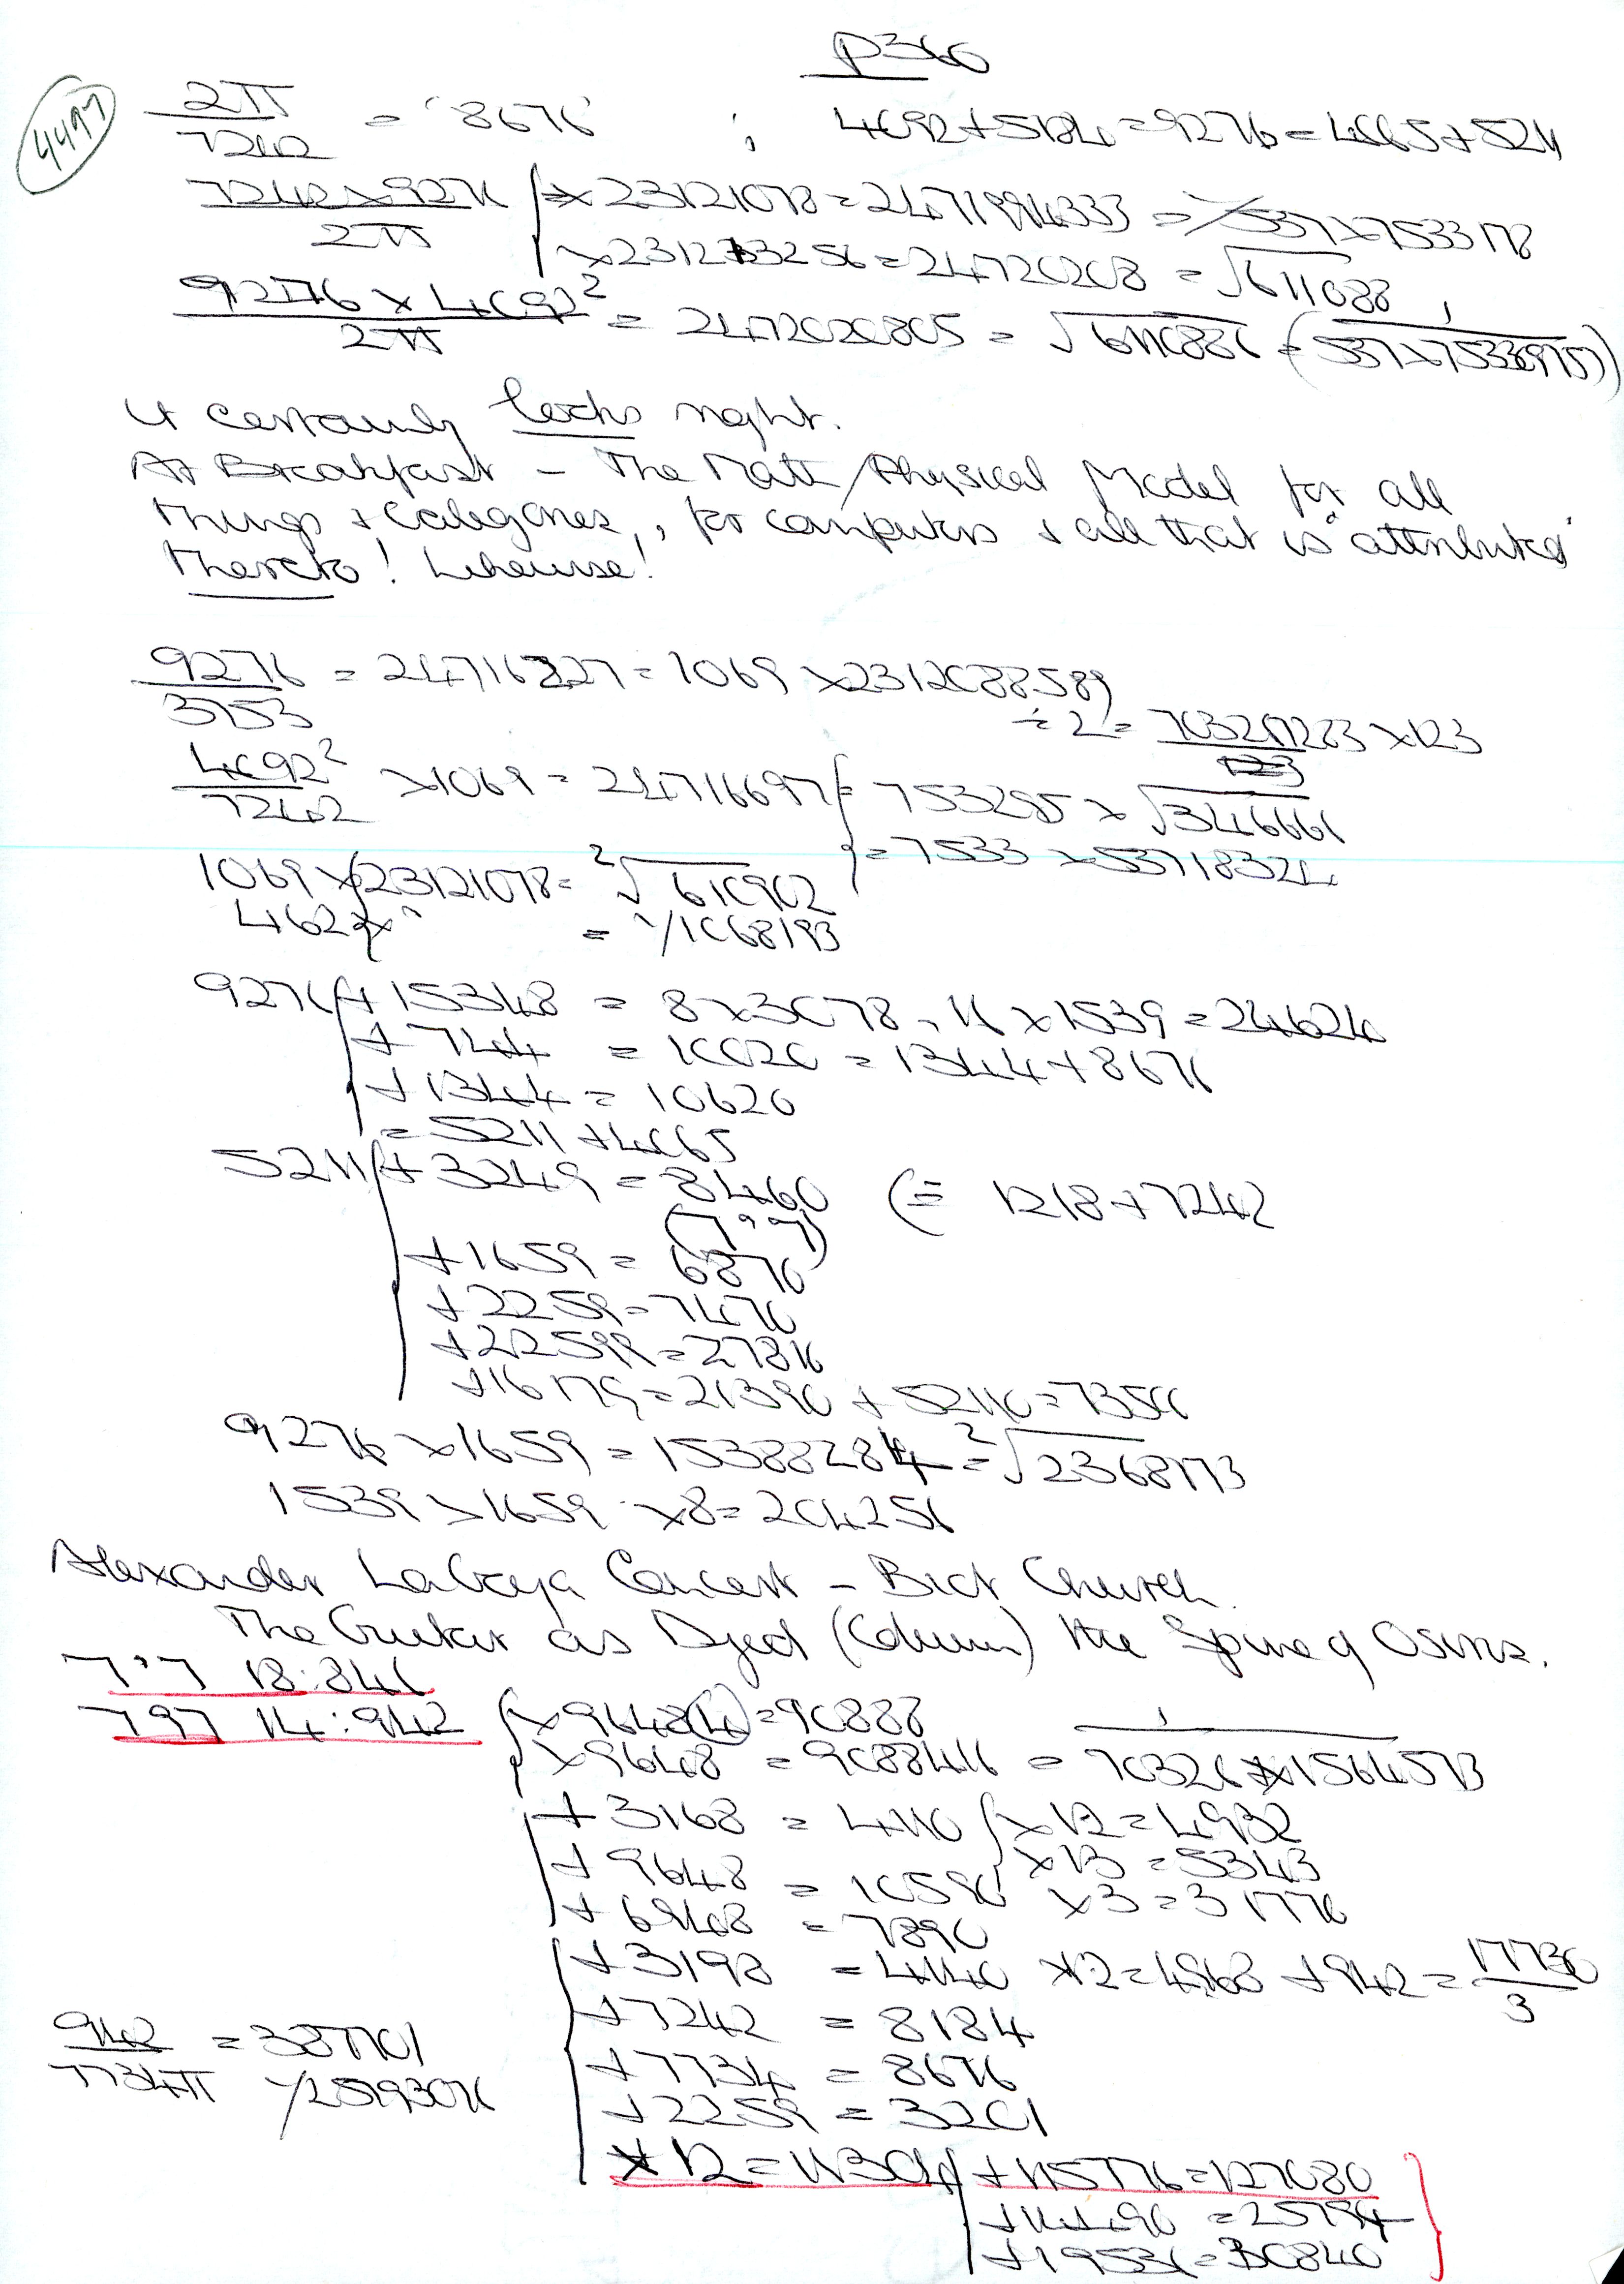 p366
4497
2π/7242 = '8676' ; 4092+5184=9276=4065+5211
7242x9276/2π x23121078=24719914333 = 1/537x7533178
x231213256=24720208 = √611088
9276 x 4092²/2π = 2472020805 = √6110886 = (1/537x75338957)
It certainly looks right.
At Breakfast – The Math/Physical Model for all
things + Categories, for computers + all that is "attributed"
thereto! Likewise!
9276/3753 = 24716227 = 1069 x2312088589
÷2= 7032017283 x123
4092²/7242 x1069 = 24716697 = 753285 x √346666
= 7533 x53718324
1069 x23121078= ²√610902
4624x " = 1/1068193
9276 +15348 = 8x3078, 16x1539=24624
+ 744 = 10020 = 1344+8676
+1344 = 10620
= 5211 +4065
5211 + 3249 = 8460 (= 1218+7242
(7°9)
+1659 = 6870
+2259=7470
+22599=27810
+16179=21390 + 52110=73500
9276 x1659 = 15388284 = ²√2368173
1539 x1659 x8=204256
Alexander LaCoya Concert – Brct Church.
The Guitar as Djed (Column) the Spine of Osiris.
7°7 18:846
797 14:942 x9648(4)=90888
x9648 = 9088416 = 1/70326x1564573
+3168 = 4110 x12=4932
x13 =5343
+9648 = 10590 x3=31770
+6948 = 7890
+3198 = 4140 x12=4968 +942=17730/3
+7242 = 8184
942/7734π = 387701
1/25793076
+7734 = 8676
+2259 = 3201
x12=11304 +115776=127080
+14490 =25794
+19536=30840